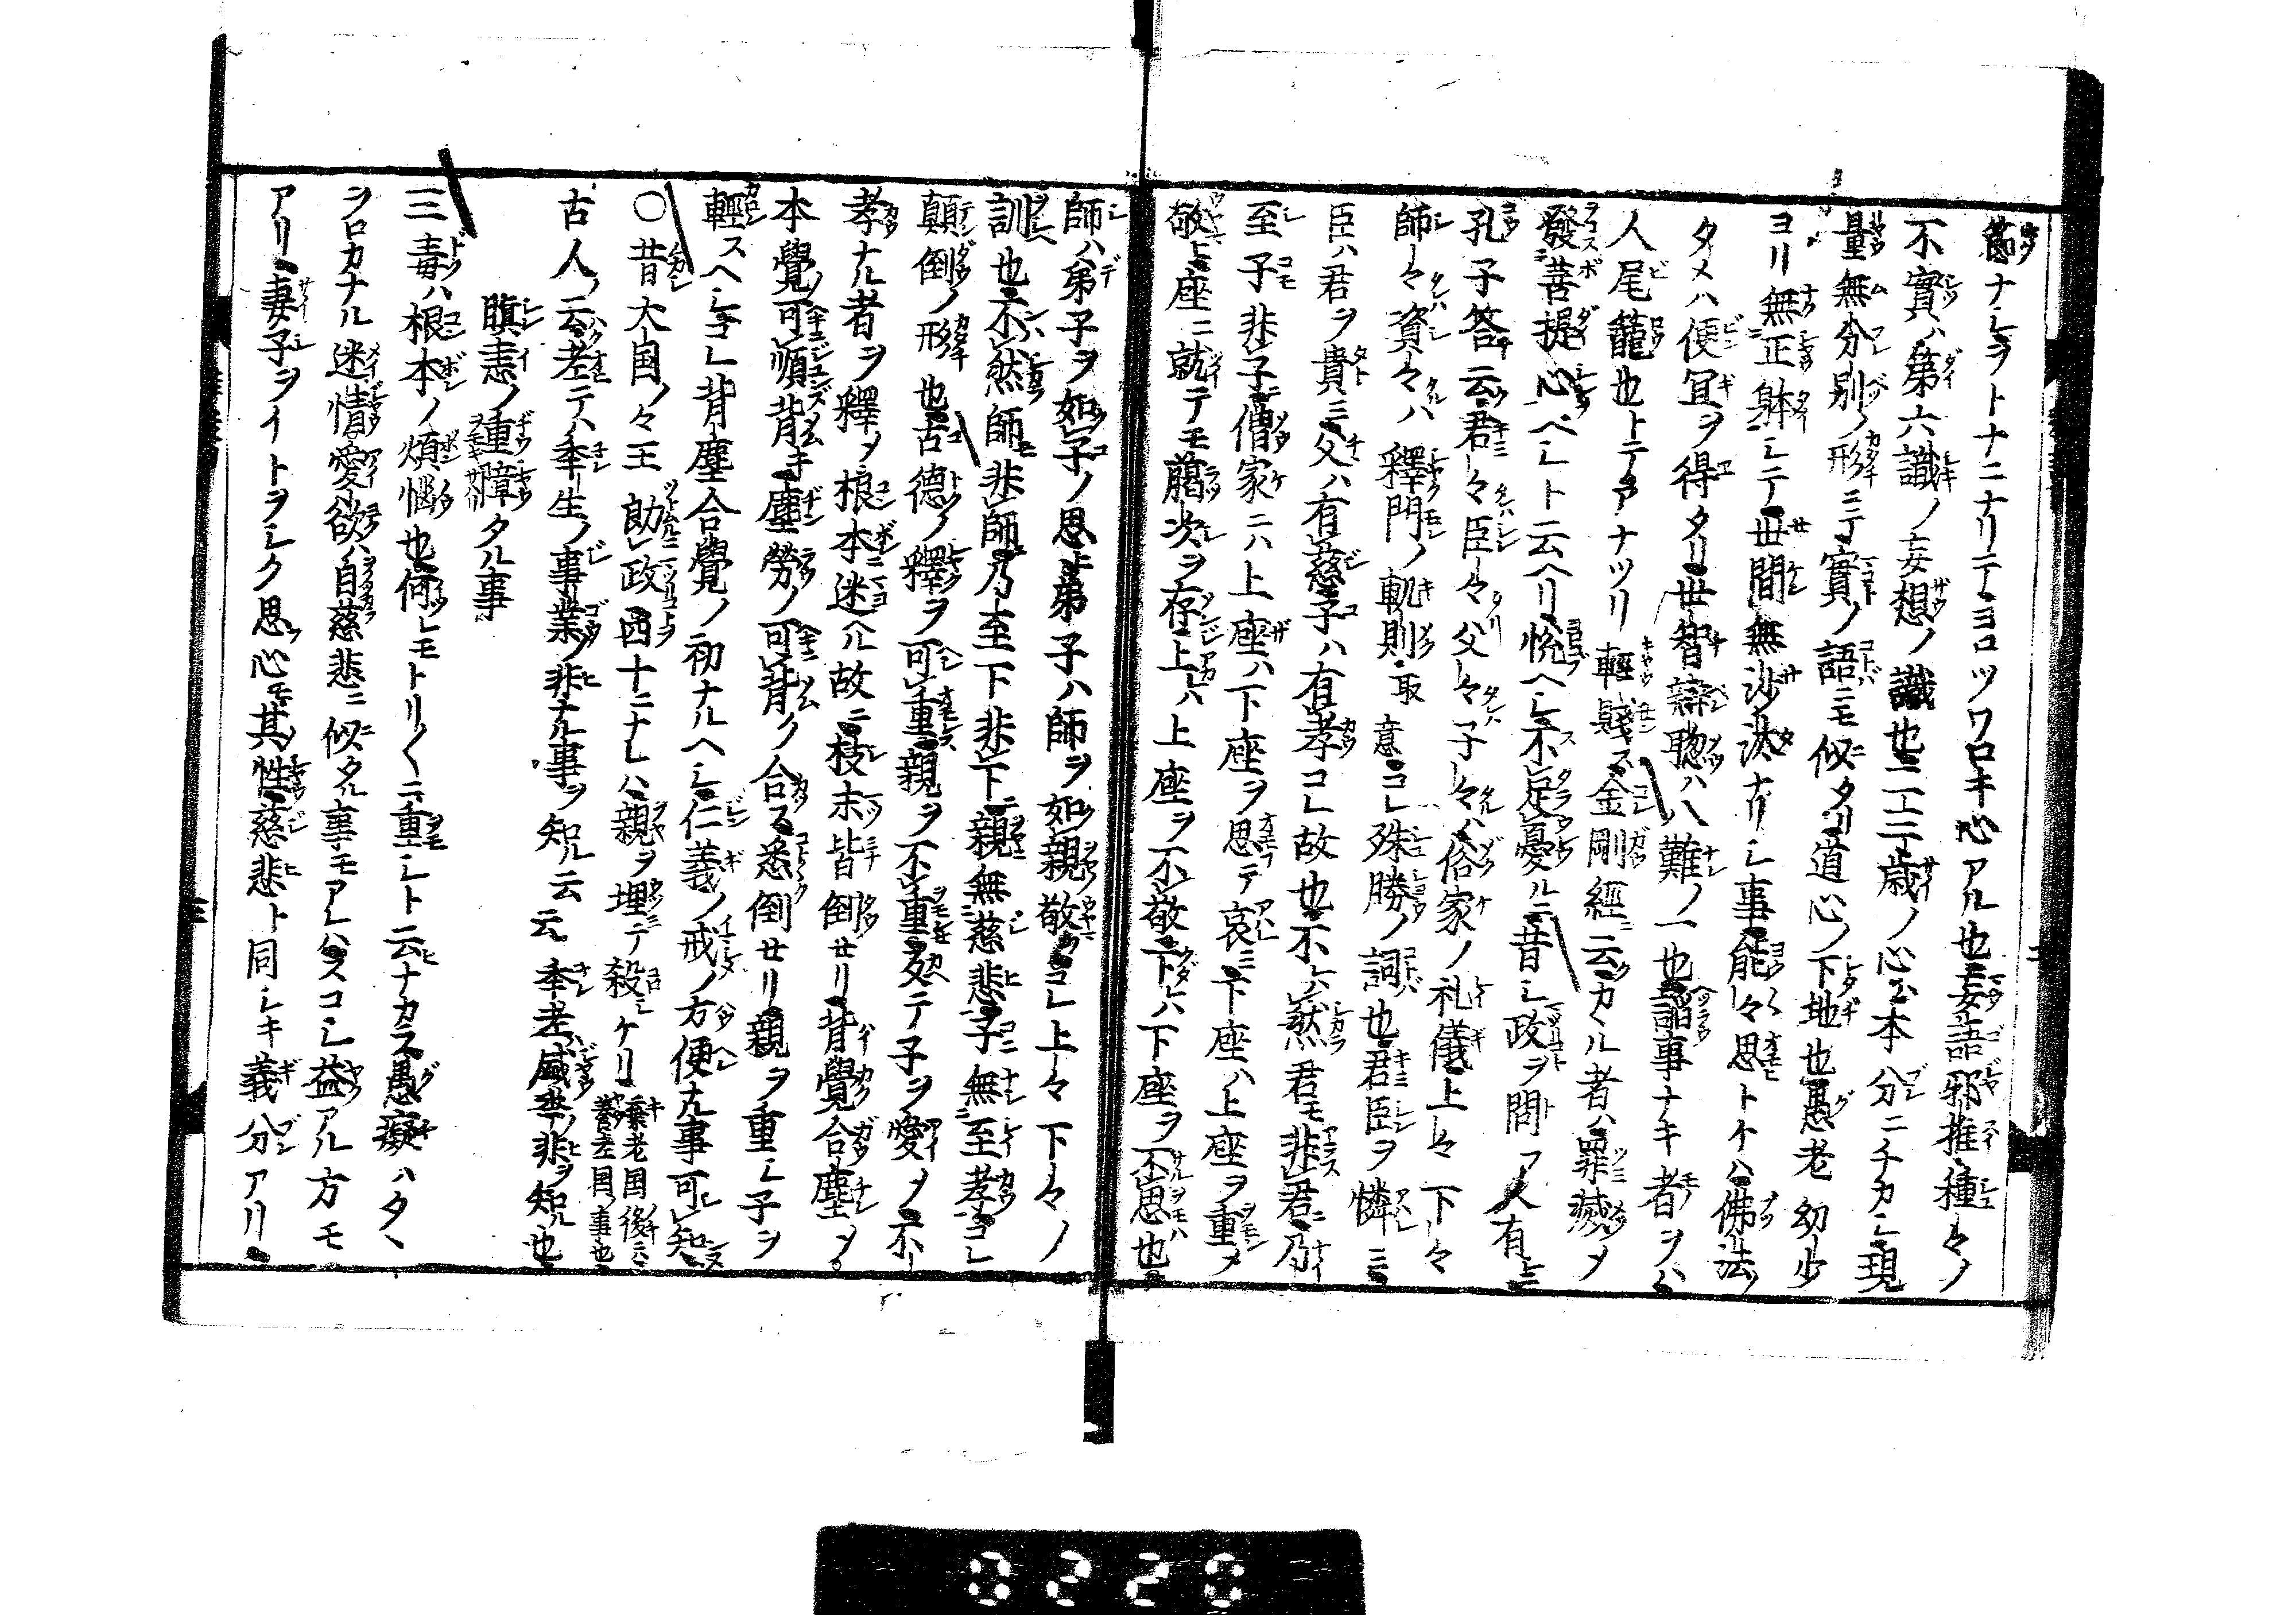 ナレヲトナニナリテヨコツワロキ心アル也妄語邪推種々ノ
不實ハ第六識ノ妄想ノ識也二三歳ノ心ハ本分ニチカシ現
量無分別ノ形ミ丁實ノ語ニモ似タリ道心ノ下地也愚老幼少
ヨリ無正躰シテ世間無沙汰ナリシ事能々思トケハ佛法ノ
タメハ便冝ヲ得タリ世智辯聰ハ八難ノ一也諂事ナキ者ヲハ
人尾籠也トテアナツリ輕賤ス金剛經云カヽル者ハ罪滅メ
發菩提心ヘシト云ヘリ悦ヘシ不足憂ルニ昔シ政ヲ問フ人有シニ
孔子答云君々臣々父々子々ハ俗家ノ礼儀上々下々
師々資々ハ釋門ノ軌則取意コレ殊勝ノ詞也君臣ヲ憐ミ
臣ハ君ヲ貴ミ父ハ有慈子ハ有孝コレ故也不ハ然君モ非君乃
至子非子僧家ニハ上座ハ下座ヲ思テ哀ミ下座ハ上座ヲ重メ
敬上座ニ就テモ﨟次ヲ存上レハ上座ヲ不敬下レハ下座ヲ不思也
師ハ弟子ヲ如子ノ思ヒ弟子ハ師ヲ如親敬コレ上々下々ノ
訓也不然師非師乃至下非下親無慈悲子無至孝コレ
顛倒ノ形也古德ノ釋ヲ可重親ヲ不重忽テ子ヲ愛メノ不
孝ナル者ヲ釋メ根本迷ヘル故ニ枝末皆倒セリ背覺合塵メ
本覺可順背キ塵勞ノ可背ク合ス悉倒セリ親ヲ重シ子ヲ
輕スヘシコレ背塵合覺ノ初ナルヘシ仁義ノ戒ノ方便九事可知
〇昔大国ノ々王勅政四十ニナレハ親ヲ埋ミテ殺シケリ棄老国後ニハ養老国ノ事也
古人ノ云老テハ季生ノ事業ノ非ナル事ヲ知ル云云季老ハ盛季ノ非ヲ知ル也
瞋恚ノ重障タル事
三毒ハ根本ノ煩惱也何レモトリ〱ニ重シト云ナカラ愚癡ハタヽ
ヲロカナル迷情愛欲ハ自慈悲ニ似タル事モアレハスコシ益アル方モ
アリ妻子ヲイトヲシク思フ心モ其性慈悲ト同シキ義分アリ
0220